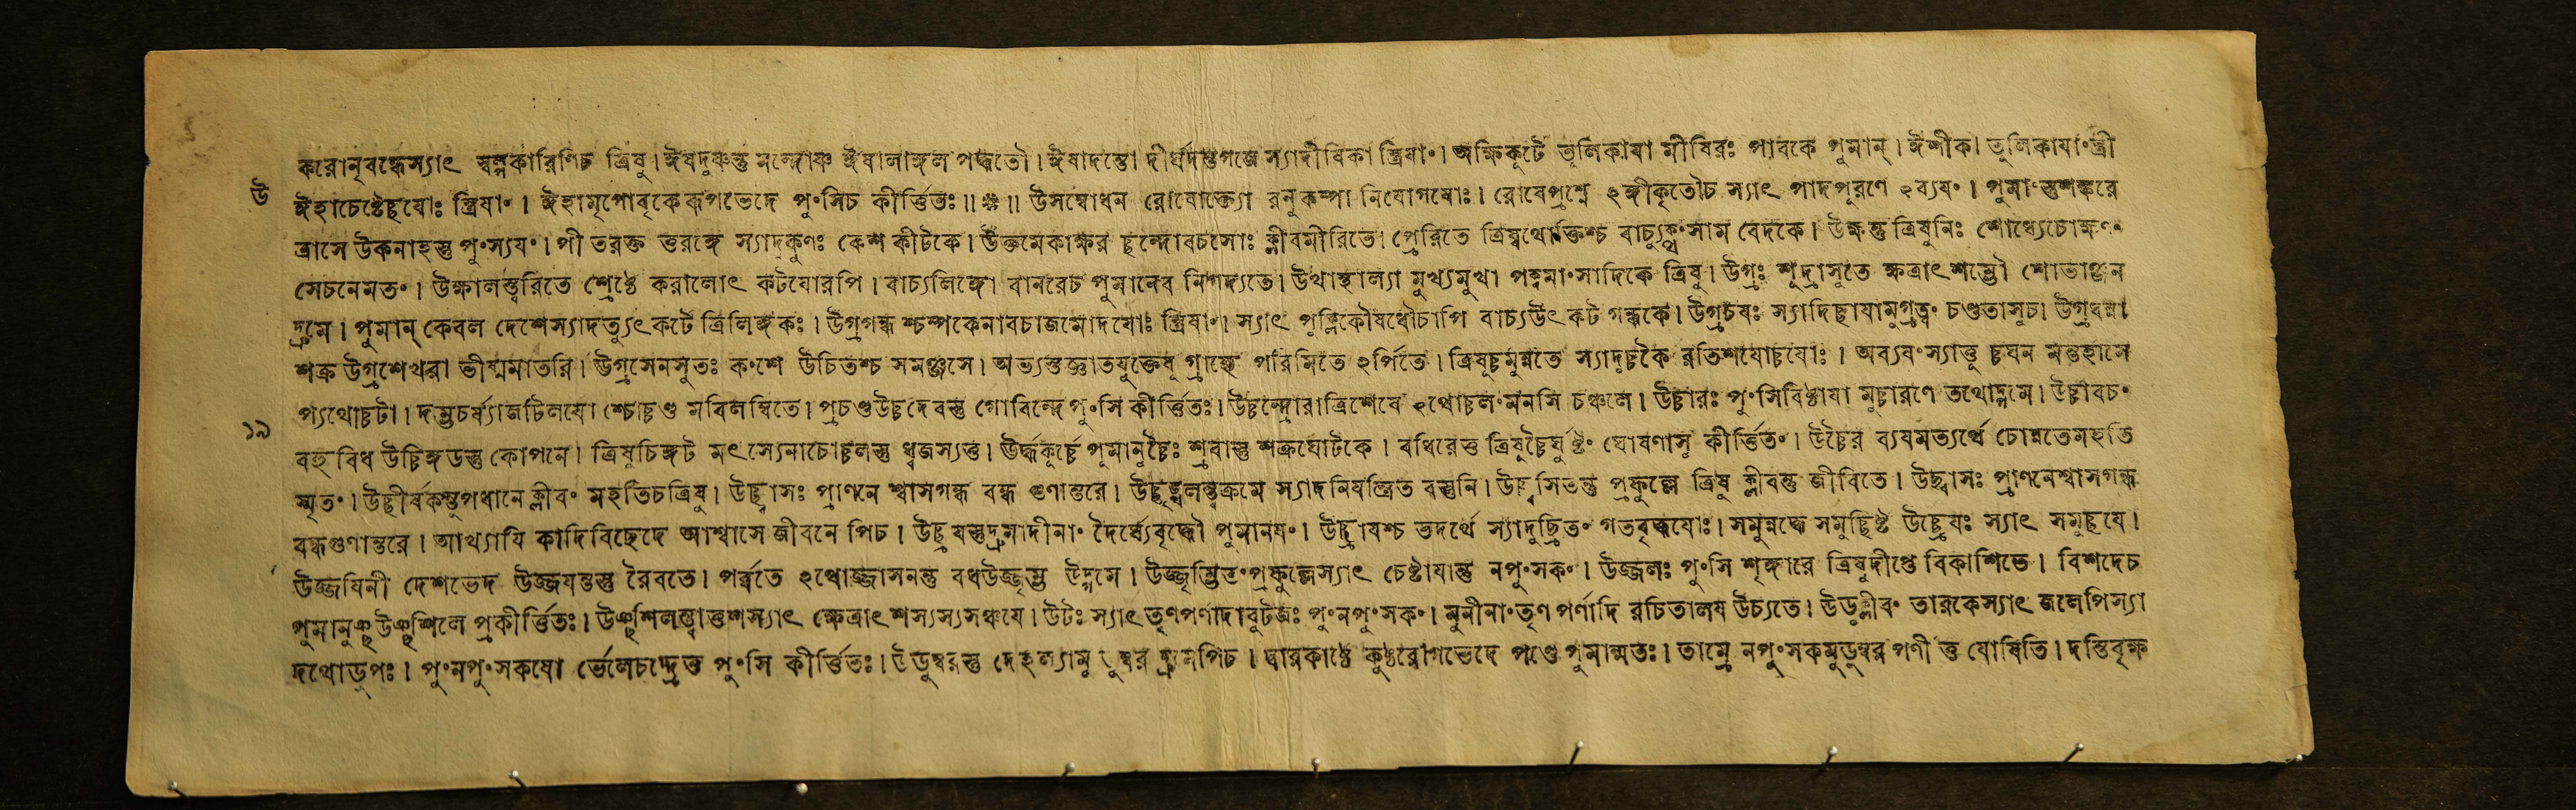 করোনৃবদ্ধেস্যাৎ স্বল্পকারিণিচ ত্রিষু। ঈষদুষ্ণন্তু মন্দোষ্ণ ঈষালাঙ্গল পদ্ধতৌ। ঈষাদন্তো দীর্ঘদন্তগজে স্যাদীষিকা স্ত্রিযাং। অক্ষিকূটে তূলিকাযা মীষিরঃ পাবকে পুমান্। ঈশীকা তুলিকাযাং স্ত্রী
উ
ঈহাচেষ্টেচ্ছযোঃ স্ত্রিযাং। ঈহামৃগোবৃকেরূপভেদে পুংসিচ কীর্ত্তিতঃ॥ ※ ॥ উসম্বোধন রোষোক্ত্যো রনুকম্পা নিযোগযোঃ। রোষেপ্রশ্নে ঽঙ্গীকৃতৌচ স্যাৎ পাদপূরণে ঽব্যযং। পুমাংস্তুশঙ্করে
ত্রাসে উকনাহস্তু পুংস্যযং। পীতরক্ত তুরঙ্গে স্যাদুকুণঃ কেশ কীটকে। উক্তমেকাক্ষর চ্ছন্দোবচসোঃ ক্লীবমীরিতে। প্রেরিতে ত্রিষ্বথোক্তিশ্চ বাচ্যুক্থংসাম বেদকে। উক্ষন্তু ত্রিষুনিঃ শোধ্যেচোক্ষণং
সেচনেমতং। উক্ষালস্ত্বরিতে শ্রেষ্ঠে করালোৎ কটযোরপি। বাচ্যলিঙ্গো বানরেচ পুমানেব নিগদ্যতে। উখাস্থাল্যা মুখ্যমুখা পক্বমাংসাদিকে ত্রিষু। উগ্রঃ শূদ্রাসুতে ক্ষত্রাৎ শম্ভৌ শোভাঞ্জন
দ্রুমে। পুমান্ কেবল দেশেস্যাদত্যুৎকটে ত্রিলিঙ্গকঃ। উগ্রগন্ধ শ্চম্পকেনাবচাজমোদযোঃ স্ত্রিযাং। স্যাৎ পুতিকৌষধৌচাপি বাচ্যউৎকট গন্ধকে। উগ্রচযঃ স্যাদিচ্ছাযামুগ্রত্বং চণ্ডতাসুচ। উগ্রধন্বা
শক্র উগ্রশেখরা ভীষ্মমাতরি। উগ্রসেনসুতঃ কংশে উচিতশ্চ সমঞ্জসে। অভ্যস্তজ্ঞাতযুক্তেষু গ্রাহ্যে পরিমিতে ঽর্পিতে। ত্রিষূচ্চমুন্নতে স্যাদুচ্চকৈ রতিশযোচ্চযোঃ। অব্যযংস্যাত্তু চ্চযন মন্তহাসে
প্যথোচ্চটা। দম্ভচর্য্যাজটিলযো শ্চোচ্চণ্ড মবিলম্বিতে। প্রচণ্ডউচ্চদেবস্তু গোবিন্দেপুংসি কীর্ত্তিতঃ। উচ্চন্দ্রোরাত্রিশেষে ঽথোচ্চলংমনসি চঞ্চলে। উচ্চারঃ পুংসিবিষ্ঠাযা মুচ্চারণে তথোদ্গমে। উচ্চাবচং
১৯
বহুবিধ উচ্চিঙ্গডস্তু কোপনে। ত্রিষুচিঙ্গট মৎস্যেনাচোচ্চূলস্তু ধ্বজস্যতু। ঊর্দ্ধকূর্চ্চে পুমানুচ্চৈঃ শ্রবাস্তু শক্রঘোটকে। বধিরেতু ত্রিষুচ্চৈর্ঘুষ্টং ঘোষণাসু কীর্ত্তিতং। উচ্চৈর ব্যযমত্যর্থে চোন্নতেমহতি
স্মৃতং। উচ্ছীর্ষকন্তুপধানেক্লীবং মহতিচত্রিষু। উচ্ছ্বাসঃ প্রাণনে শ্বাসগন্ধ বন্ধ গুণান্তরে। উচ্ছৃঙ্খলন্ত্বক্রমে স্যাদনিযন্ত্রিত বস্তুনি। উচ্ছ্বসিতন্তু প্রফুল্লে ত্রিষু ক্লীবন্তু জীবিতে। উচ্ছ্বাসঃ প্রাণনেশ্বাসগন্ধ
বন্ধগুণান্তরে। আখ্যাযি কাদিবিছেদে আশ্বাসে জীবনে পিচ। উচ্ছ্রযস্তুদ্রুমাদীনাং দৈর্ঘ্যেবৃদ্ধৌ পুমানযং। উচ্ছ্রাযশ্চ তদর্থে স্যাদুচ্ছ্রিতং গতবৃদ্ধযোঃ। সমুন্নদ্ধে সমুচ্ছিষ্ট উচ্ছ্রেযঃ স্যাৎ সমুচ্ছযে।
উজ্জযিনী দেশভেদ উজ্জযন্তস্তু রৈবতে। পর্ব্বতে ঽথোজ্জাসনন্তু বধউজ্জৃম্ভ উদ্গমে। উজ্জৃম্ভিতংপ্রফুল্লেস্যাৎ চেষ্টাযান্তু নপুংসকং। উজ্জ্বলঃ পুংসি শৃঙ্গারে ত্রিষুদীপ্তে বিকাশিতে। বিশদেচ
পুমানুঞ্ছউঞ্ছশিলে প্রকীর্ত্তিতঃ। উঞ্ছশিলন্ত্বাত্তশস্যাৎ ক্ষেত্রাৎ শস্যস্যসঞ্চযে। উটঃ স্যাৎ তৃণপর্ণাদাবুটজঃ পুংনপুংসকং। মুনীনাংতৃণ পর্ণাদি রচিতালয উচ্যতে। উডুক্লীবং তারকেস্যাৎ জলেপিস্যা
দথোডুপঃ। পুংনপুংসকযো র্ভেলেচন্দ্রেতু পুংসি কীর্ত্তিতঃ। উডুম্বরস্তু দেহল্যামু দ্রুমপিচ। দ্বারকাষ্ঠে কুষ্ঠরোগভেদে পণ্ডে পুমান্মতঃ। তাম্রে নপুংসকমুডুম্বর পর্ণী তু যোষিতি। দন্তিবৃক্ষ